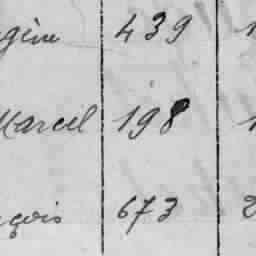 gène 439 1
Marcel 198 1
çois 673 2